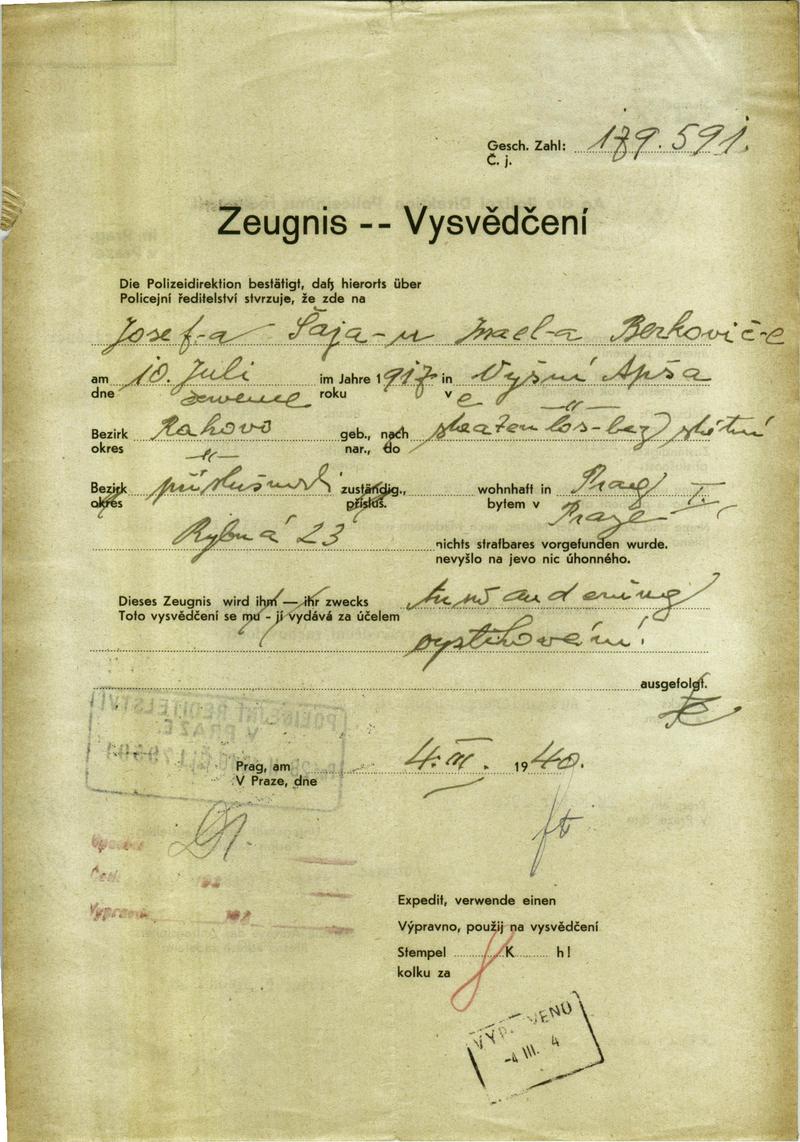 Gesch. Zahl: 179.591.
Č. j.
Zeugnis -- Vysvědčení
Die Polizeidirektion bestätigt, daß hierorts über
Policejní ředitelství stvrzuje, že zde na
Josef-a Šaja-u Israel-a Berkovič-e
am 10. Juli im Jahre 1917 in Vyšní Apša
dne července roku v e -"-
Bezirk Rahovo geb., nach bez státní
okres -"- nar., do
Bezirk příslušnosti zuständig., wohnhaft in Prag I.,
okres přísluš. bytem v Praze
Rybná 23 nichts strafbares vorgefunden wurde.
nevyšlo na jevo nic úhonného.
Dieses Zeugnis wird ihm — ihr zwecks
Toto vysvědčení se mu - jí vydává za účelem
vystěhování!
ausgefolgt.
POLICEJNÍ ŘEDITELSTVÍ
V PRAZE
Prag, am 4. III. 1940.
V Praze, dne
Expedit, verwende einen
Výpravno, použij na vysvědčení
Stempel 8 K h!
kolku za
VYPRAVENO
-4 III. 4